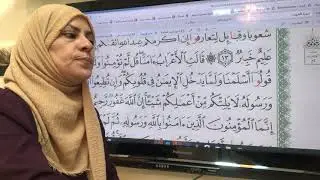 شعوبا وقبائل لتعارفوا إن أكرمكم عند الله أتقىكم
عليم خبير ١٣ قالت الأعراب ءامنا قل لم تؤمنوا
قولوا أسلمنا ولما يدخل الإيمن فى قلوبكم وإن تطيعوا
ورسوله لا يلتكم من أعملكم شيئا إن الله غفور رحيم
إنما المؤمنون الذين ءامنوا بالله ورسوله